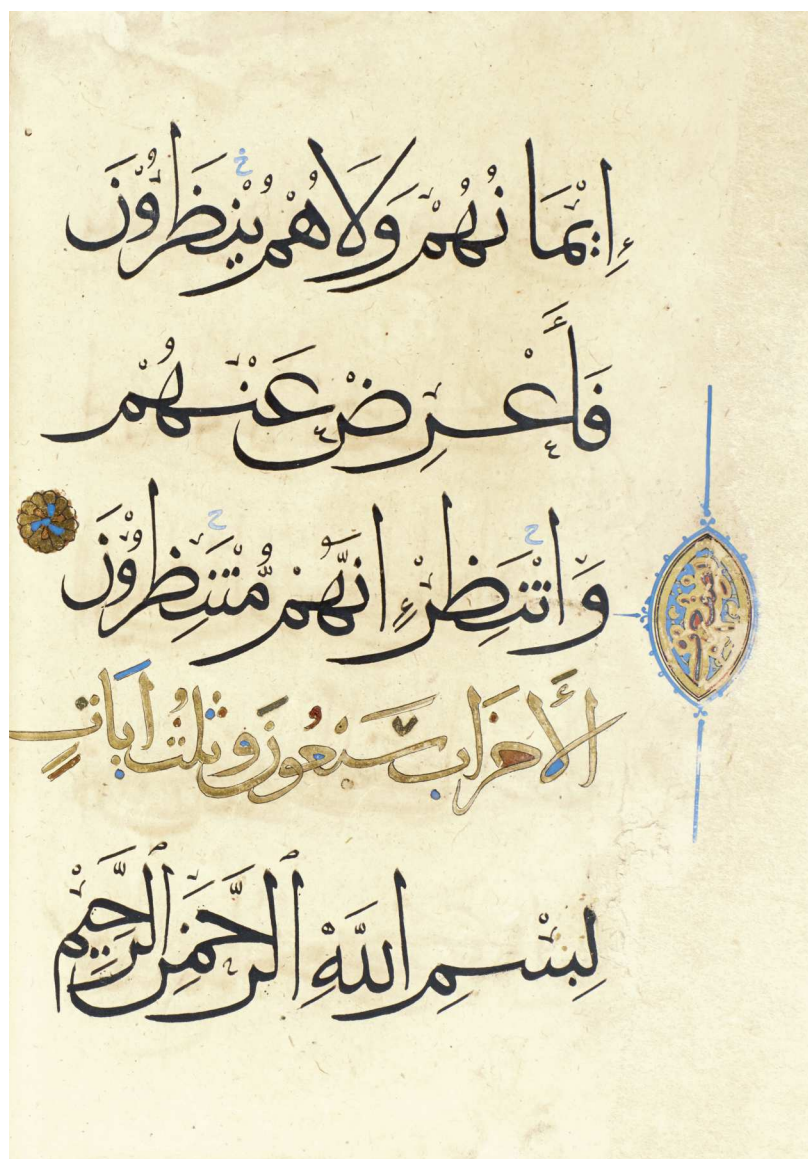 إِيمَانُهُمْ وَلَا هُمْ يُنْظَرُونَ
فَأَعْرِضْ عَنْهُمْ
وَانْتَظِرْ إِنَّهُمْ مُنْتَظِرُونَ
الأَحْزَاب سَبْعُونَ وَثَلٰثُ آيَاتٍ
بِسْمِ اللَّهِ الرَّحْمَنِ الرَّحِيمِ